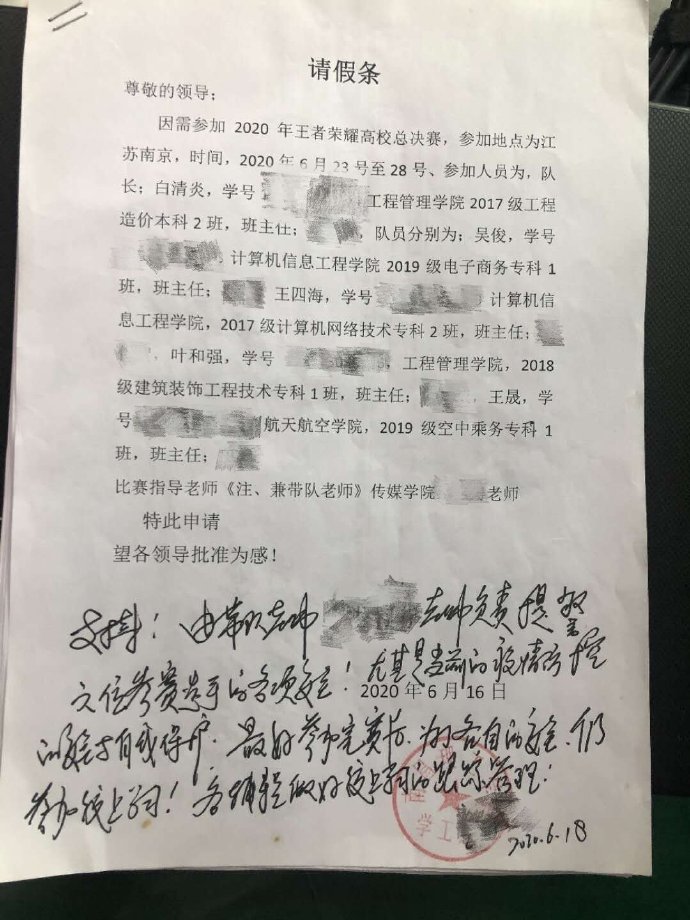 请假条
尊敬的领导；
因需参加 2020 年王者荣耀高校总决赛，参加地点为江
苏南京，时间，2020 年 6 月 23 号至 28 号、参加人员为，队
长；白清炎，学号 工程管理学院 2017 级工程
造价本科 2 班，班主任； ，队员分别为；吴俊，学号
，计算机信息工程学院 2019 级电子商务专科 1
班，班主任； 王四海，学号 计算机信
息工程学院，2017 级计算机网络技术专科 2 班，班主任；
，叶和强，学号 ，工程管理学院，2018
级建筑装饰工程技术专科 1 班，班主任； ，王晟，学
号 航天航空学院，2019 级空中乘务专科 1
班，班主任；
比赛指导老师《注、兼带队老师》传媒学院 老师
特此申请
望各领导批准为感！
支持！由带队老师 老师负责提
六位参赛选手的各项安全！尤其是当前的疫情防控
2020 年 6 月 16 日
的安全与自我保护．最好参加完赛后．为了各自的安全．仍
参加线上学习！各辅导做好线上学习的跟踪管理！
学工
2020.6.18